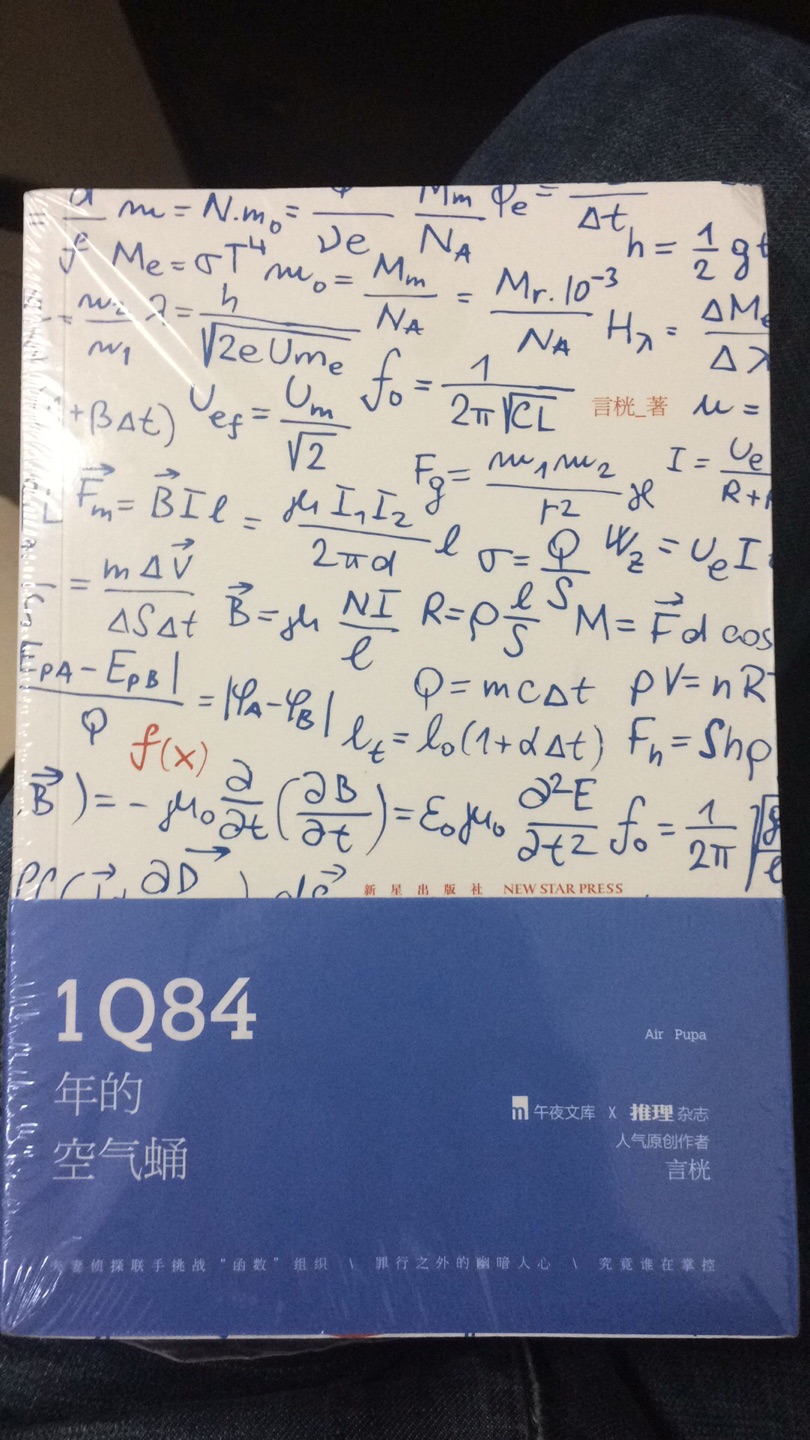 m = N.m₀ =
Mm / N_A
φe =
Δt
νe
Me = σT⁴
m₀ = Mm / N_A = Mr.10⁻³ / N_A
h = 1/2 gt
λ = h / √(2eUme)
H_λ = ΔMe / Δλ
+βΔt)
U_ef = Um / √2
f₀ = 1 / 2π√CL
言桄_著
F⃗m = B⃗Il = μ I₁I₂ / 2πd l
Fg = m₁m₂ / r² ϰ
I = Ue / R+
σ = Q / S
W_z = UeI
= mΔv⃗ / ΔSΔt
B⃗ = μ NI / l
R = ρ l / S
M = F⃗d cos
E_PA − E_PB| / Q = |φ_A − φ_B|
Q = mcΔt
pV = nR
f(x)
l_t = l₀(1+αΔt)
F_h = Shρ
B⃗) = −μ₀ ∂/∂t (∂B/∂t) = ε₀μ₀ ∂²E/∂t²
f₀ = 1/2π √g/l
∂D⃗
新星出版社 NEW STAR PRESS
1Q84
年的
空气蛹
Air Pupa
午夜文库 X 推理杂志
人气原创作者
言桄
妻侦探联手挑战“函数”组织 \ 罪行之外的幽暗人心 \ 究竟谁在掌控